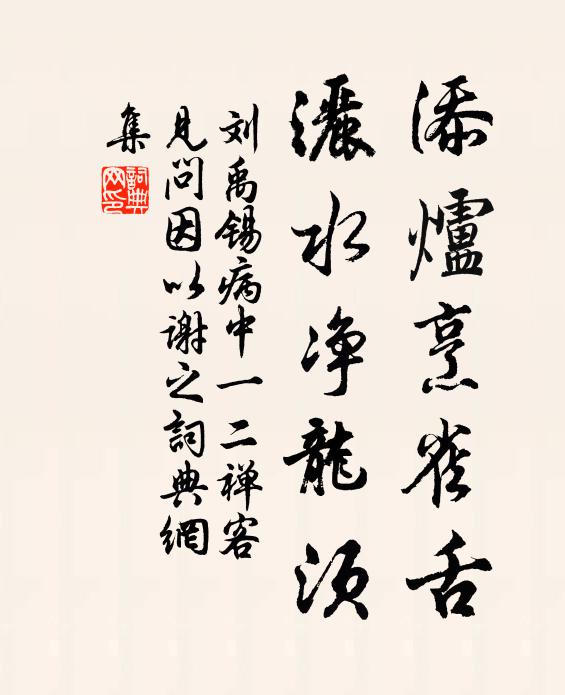 添爐烹雀舌
灑水净龍须
刘禹锡病中一二禅客
见问因以谢之詞典網
集
詞典
网印